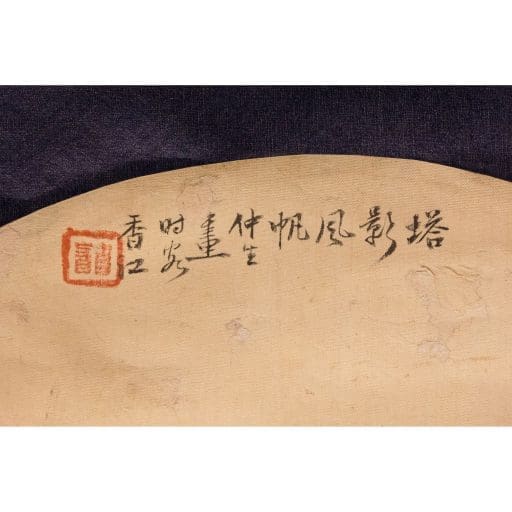 塔影风帆仲生畫时客香江